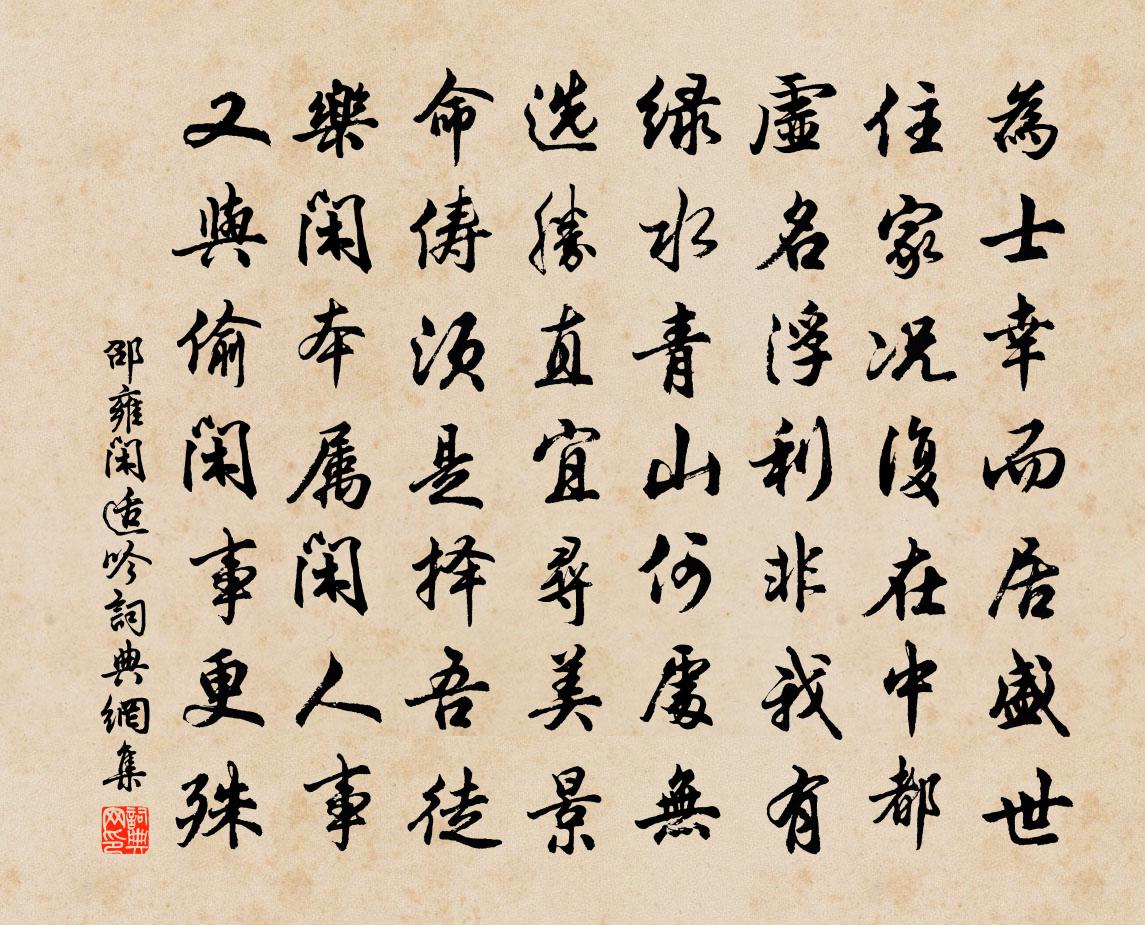 為士幸而居盛世
住家况復在中都
虛名浮利非我有
绿水青山何處無
选勝直宜尋美景
命儔须是择吾徒
樂閑本属閑人事
又與偷閑事更殊
邵雍閑适吟詞典網集
詞典网印